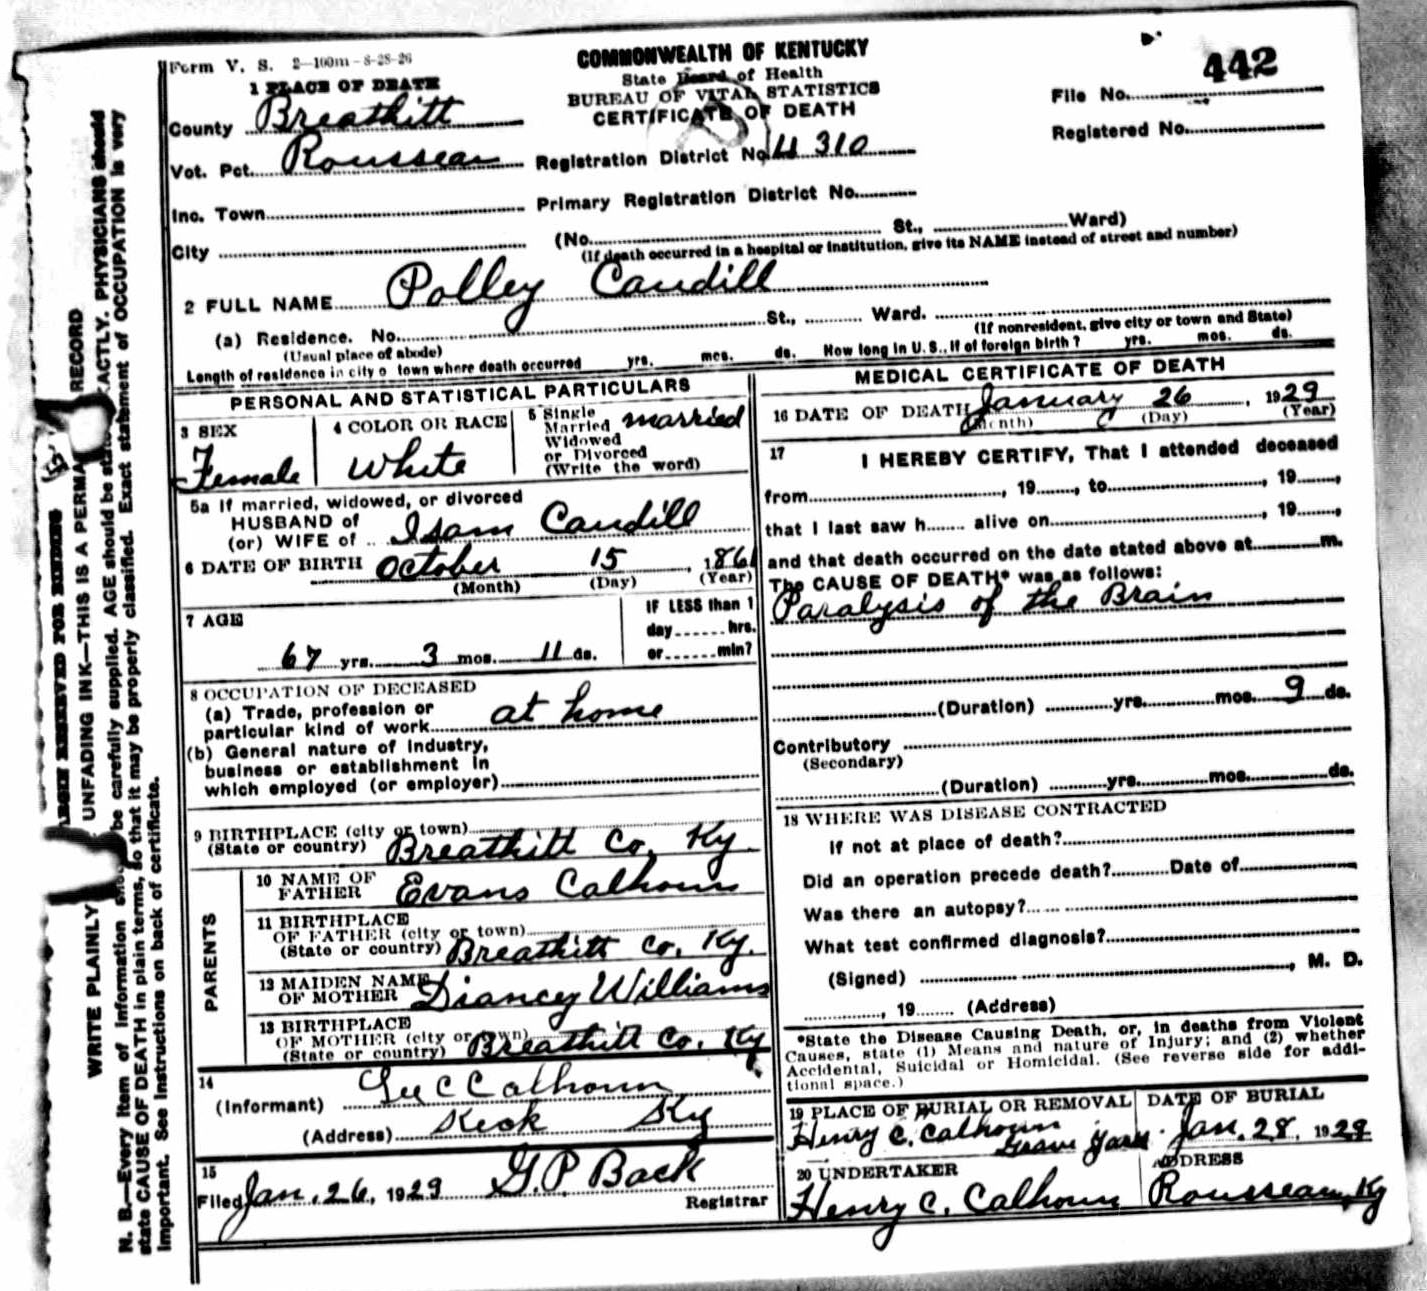 Form V. S. 2—100m—8-28-26
COMMONWEALTH OF KENTUCKY
State Board of Health
BUREAU OF VITAL STATISTICS
CERTIFICATE OF DEATH
442
File No.
Registered No.
1 PLACE OF DEATH
County Breathitt
Vot. Pct. Rousseau
Registration District No. 310
Inc. Town
Primary Registration District No.
City (No. St., Ward)
(If death occurred in a hospital or institution, give its NAME instead of street and number)
2 FULL NAME Polley Caudill
(a) Residence. No. St., Ward.
(Usual place of abode) (If nonresident, give city or town and State)
Length of residence in city o town where death occurred yrs. mos. ds. How long in U. S., if of foreign birth? yrs. mos. ds.
PERSONAL AND STATISTICAL PARTICULARS
3 SEX
Female
4 COLOR OR RACE
White
5 Single
Married
Widowed
or Divorced
(Write the word)
married
5a If married, widowed, or divorced
HUSBAND of
(or) WIFE of Isam Caudill
6 DATE OF BIRTH October 15, 1861
(Month) (Day) (Year)
7 AGE
67 yrs. 3 mos. 11 ds.
IF LESS than 1
day hrs.
or min?
8 OCCUPATION OF DECEASED
(a) Trade, profession or
particular kind of work at home
(b) General nature of Industry,
business or establishment in
which employed (or employer)
9 BIRTHPLACE (city or town)
(State or country) Breathitt Co. Ky.
PARENTS
10 NAME OF
FATHER Evans Calhoun
11 BIRTHPLACE
OF FATHER (city or town)
(State or country) Breathitt Co. Ky.
12 MAIDEN NAME
OF MOTHER Diancy Williams
13 BIRTHPLACE
OF MOTHER (city or town)
(State or country) Breathitt Co. Ky
14
(Informant) C Calhoun
(Address) Keck Ky
15
Filed Jan. 26, 1929 G. P. Back
Registrar
MEDICAL CERTIFICATE OF DEATH
16 DATE OF DEATH January 26, 1929
(Month) (Day) (Year)
17 I HEREBY CERTIFY, That I attended deceased
from , 19 , to , 19 ,
that I last saw h alive on , 19 ,
and that death occurred on the date stated above at m.
The CAUSE OF DEATH* was as follows:
Paralysis of the Brain
(Duration) yrs. mos. 9 ds.
Contributory
(Secondary)
(Duration) yrs. mos. ds.
18 WHERE WAS DISEASE CONTRACTED
If not at place of death?
Did an operation precede death? Date of
Was there an autopsy?
What test confirmed diagnosis?
(Signed) , M. D.
, 19 (Address)
*State the Disease Causing Death, or, in deaths from Violent
Causes, state (1) Means and nature of Injury; and (2) whether
Accidental, Suicidal or Homicidal. (See reverse side for addi-
tional space.)
19 PLACE OF BURIAL OR REMOVAL
Henry C. Calhoun
Grave Yard
DATE OF BURIAL
Jan. 28, 1929
20 UNDERTAKER
Henry C. Calhoun
ADDRESS
Rousseau, Ky
RESERVED FOR BINDING
WRITE PLAINLY UNFADING INK—THIS IS A PERMA RECORD
N. B.—Every item of information be carefully supplied. AGE should be EXACTLY. PHYSICIANS should
state CAUSE OF DEATH in plain terms, so that it may be properly classified. Exact statement of OCCUPATION is very
important. See instructions on back of certificate.